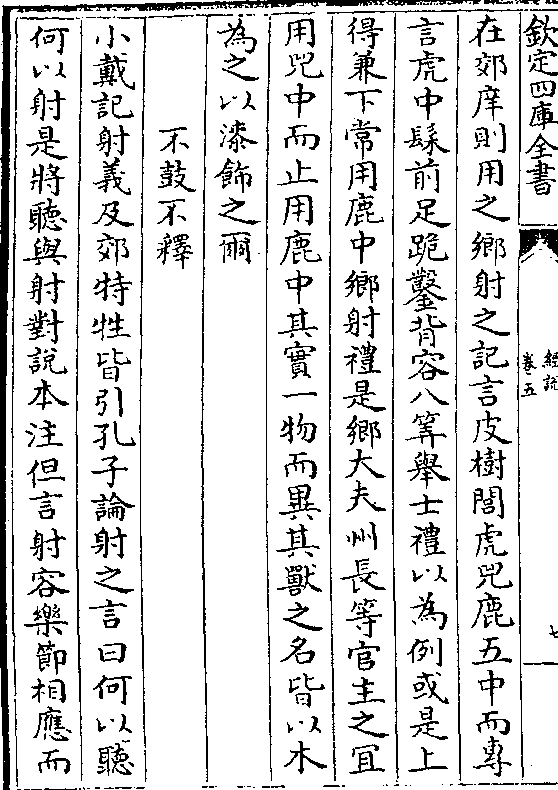 欽定四庫全書
經說
卷五
七
在郊庠則用之鄉射之記言皮樹閭虎兕鹿五中而專
言虎中髹前足跪鑿背容八筭舉士禮以為例或是上
得兼下常用鹿中鄉射禮是鄉大夫州長等官主之冝
用兕中而止用鹿中其實一物而異其獸之名皆以木
為之以漆飾之爾
不鼓不釋
小戴記射義及郊特牲皆引孔子論射之言曰何以聽
何以射是將聽與射對說本注但言射容樂節相應而